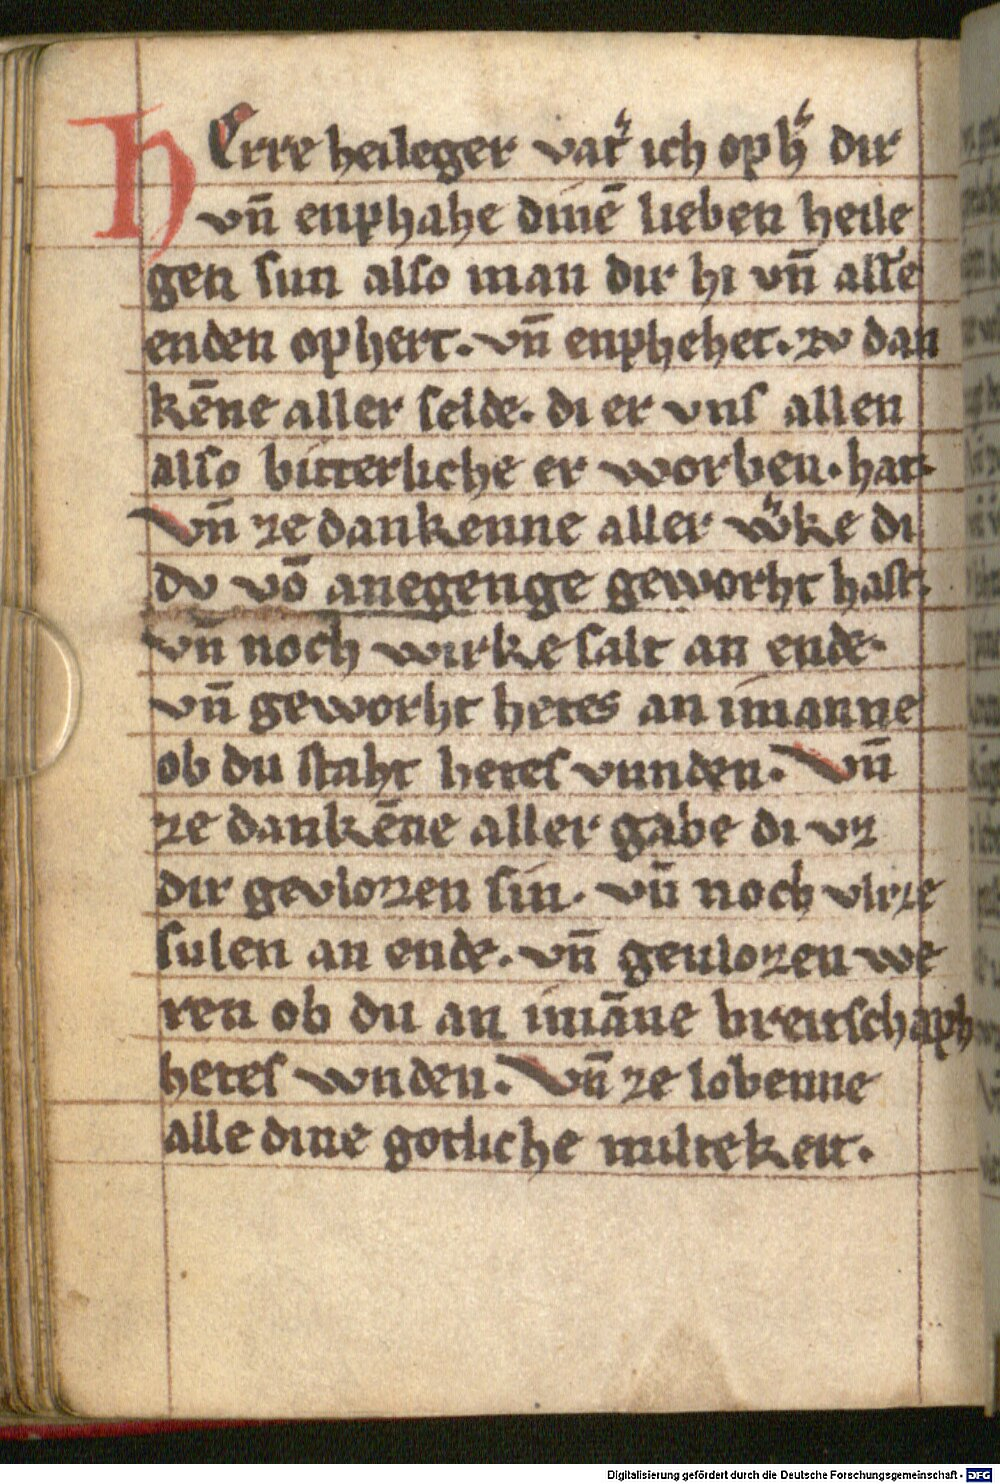 HErre heileger vat͛ ich oph͛ dir
vn̄ enphahe dinē lieben heile
gen sun also man dir hi vn̄ allē
enden ophert. vn̄ enphehet. zv dan
kēne aller selde. di er vns allen
also bitterliche er worben. hat.
Vn̄ ze dankenne aller w͛ke di
dv vō anegenge geworht hast.
vn̄ noch wirke salt an ende.
vn̄ geworht hetes an imanne
ob du staht hetes vunden. Vn̄
ze dankēne aller gabe di vz
dir gevlozzen sin. vn̄ noch vlizze
sulen an ende. vn̄ gevlozzen we
ren ob du an imāne breitschaph
hetes wnden. Vn̄ ze lobenne
alle dine gotliche miltekeit.
Digitalisierung gefördert durch die Deutsche Forschungsgemeinschaft - DFG